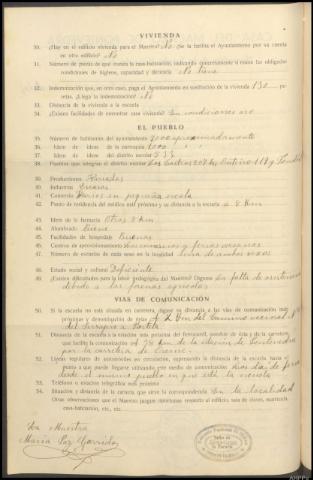 VIVIENDA
30. ¿Hay en el edificio vivienda para el Maestro? No ¿Se la facilita el Ayuntamiento por su cuenta
en otro edificio? No
31. Número de piezas de que consta la casa-habitación, indicando concretamente si reúne las obligadas
condiciones de higiene, capacidad y decencia No tiene
32. Indemnización que, en otro caso, paga el Ayuntamiento en sustitución de la vivienda 150 pe-
setas. ¿Llega la indemnización? No
33. Distancia de la vivienda a la escuela
34. ¿Existen facilidades de encontrar casa vivienda? En condiciones no
EL PUEBLO
35. Número de habitantes del ayuntamiento 7000 aproximadamente
36. Idem de ídem de la parroquia 1000
37. Idem de ídem del distrito escolar 535
38. Pueblos que integran el distrito escolar
39. Producciones Rurales
40. Industrias
41. Comercio Varios en pequeña escala
42. Punto de residencia del médico más próximo y su distancia a la escuela a 8 Km
43. Idem de la farmacia Otros 8 Km
44. Alumbrado Tiene
45. Facilidades de hospedaje Buenas
46. Centros de aprovisionamiento
47. Número de escuelas de cada sexo en la localidad Una de ambos sexos
48. Estado social y cultural Deficiente
49. ¿Existen dificultades para la labor pedagógica del Maestro? Dígame La falta de asistencia
debido a las faenas agrícolas
VIAS DE COMUNICACIÓN
50. Si la escuela no está situada en carretera, dígase su distancia a las vías de comunicación más
próximas y denominación de éstas A 2 Km del camino vecinal
51. Distancia de la escuela a la estación más próxima del ferrocarril, parador de ésta y de la carretera
que facilita la comunicación A 38 Km de la estación de Pontevedra
por la carretera de
52. Líneas regulares de automóviles en circulación, expresando la distancia de la escuela hasta el
punto a que puede llegarse utilizando este medio de comunicación Los días de feria
desde el mismo pueblo en que está la escuela
53. Teléfono o estación telegráfica más próximo
54. Situación y distancia de la cartería que sirve la correspondencia En la localidad
Otras observaciones que el Maestro juzgue oportunas respecto al edificio, sala de clases, matrícula,
casa-habitación, etc., etc.
La Maestra
María Paz Garrido
AHPPo